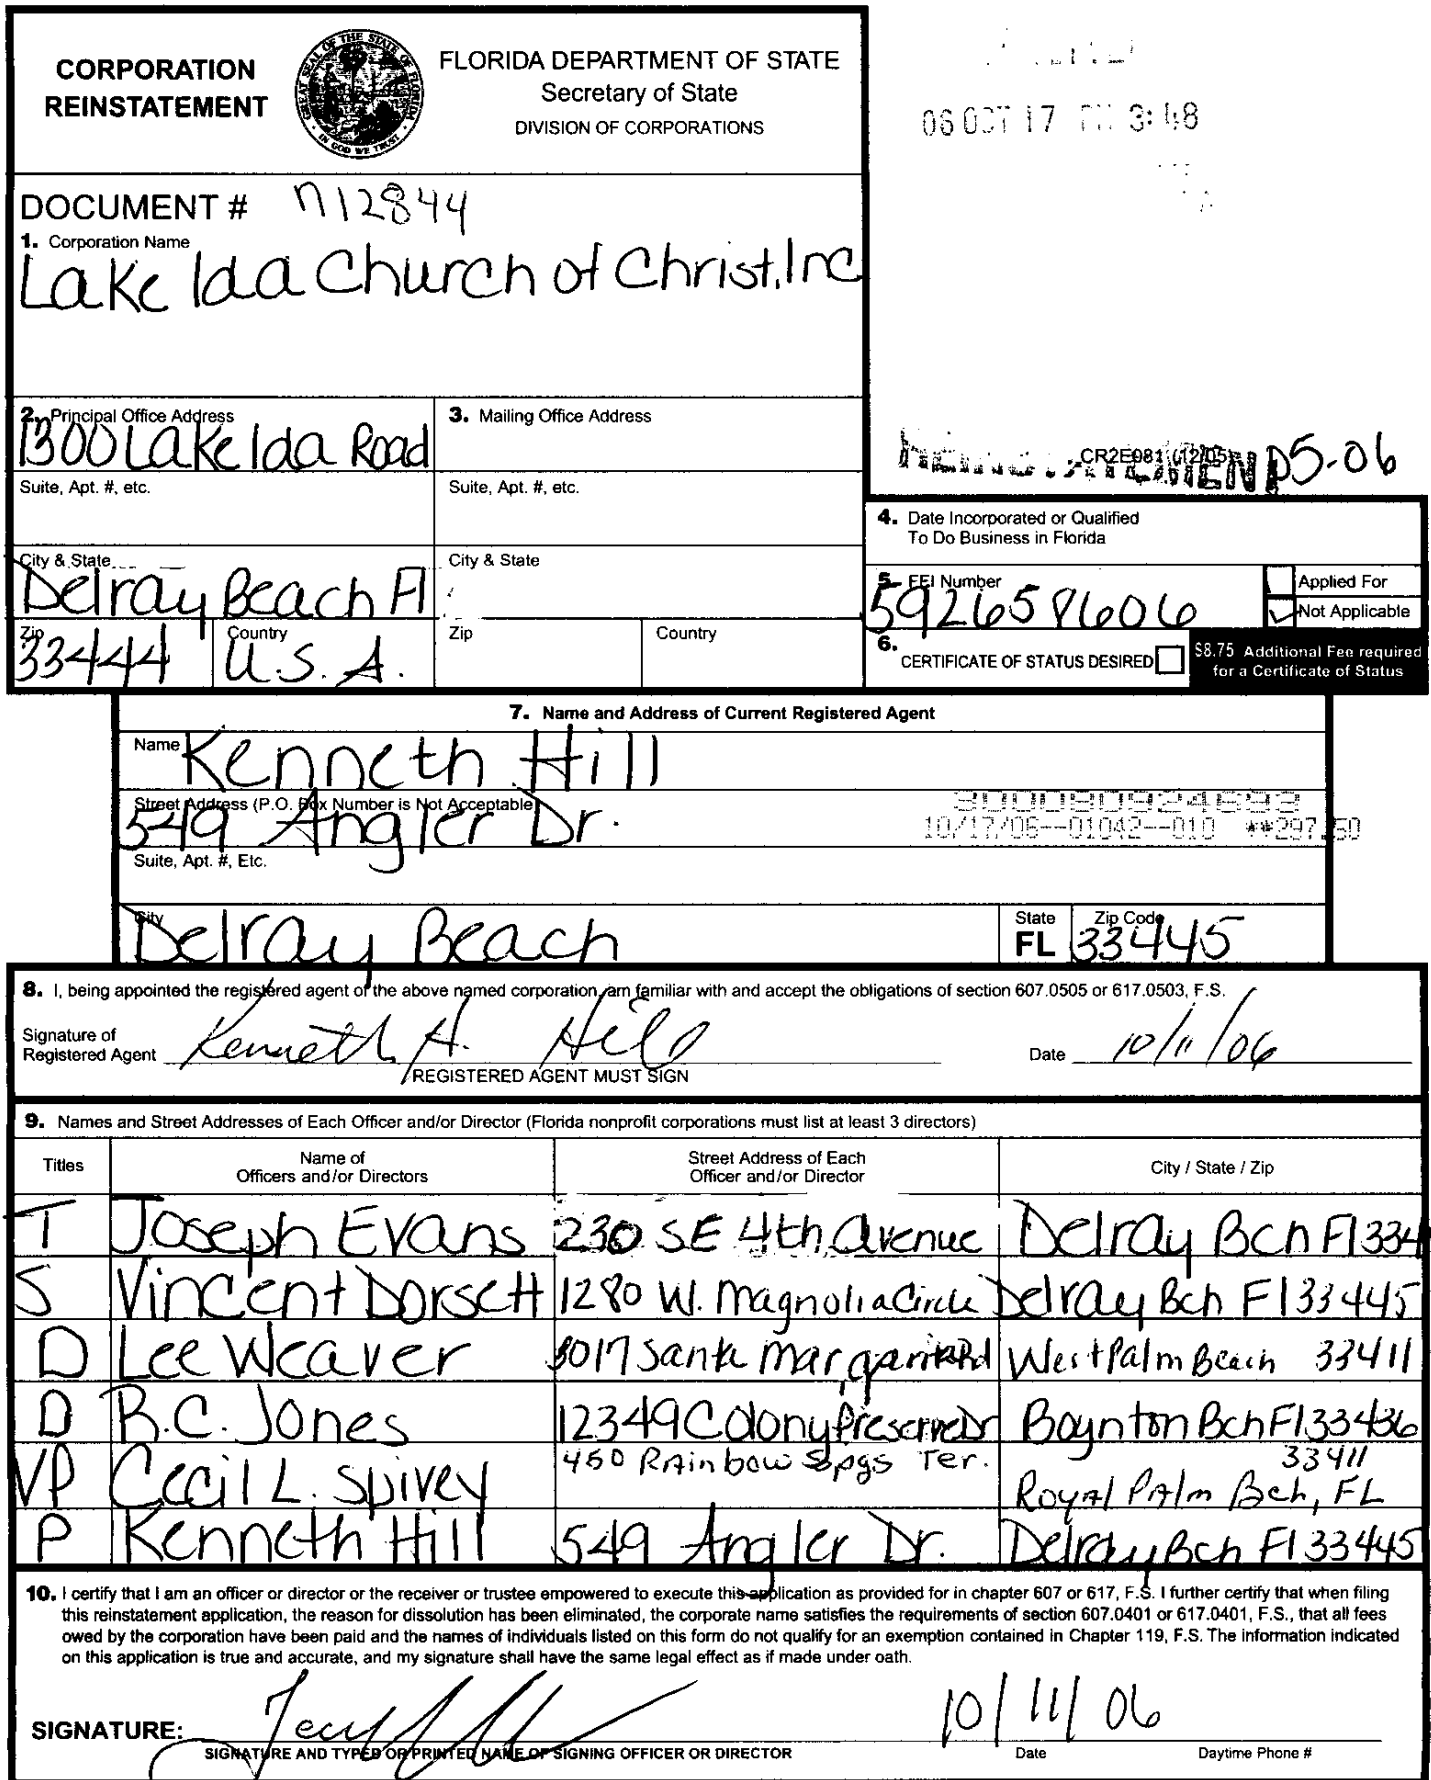 CORPORATION
REINSTATEMENT
GREAT SEAL OF THE STATE OF FLORIDA
IN GOD WE TRUST
FLORIDA DEPARTMENT OF STATE
Secretary of State
DIVISION OF CORPORATIONS
06 OCT 17 PM 3:48
DOCUMENT # N12844
1. Corporation Name
Lake Ida Church of Christ, Inc
2. Principal Office Address
1300 Lake Ida Road
3. Mailing Office Address
CR2E081 (12/05)
REINSTATEMENT 05-06
Suite, Apt. #, etc.
Suite, Apt. #, etc.
4. Date Incorporated or Qualified
To Do Business in Florida
City & State
Delray Beach Fl
City & State
5. FEI Number
592658606
Applied For
Not Applicable
Zip
33444
Country
U.S.A.
Zip
Country
6. CERTIFICATE OF STATUS DESIRED
$8.75 Additional Fee required
for a Certificate of Status
7. Name and Address of Current Registered Agent
Name Kenneth Hill
Street Address (P.O. Box Number is Not Acceptable)
549 Angler Dr.
10/17/06--01042--010 **297.50
Suite, Apt. #, Etc.
City
Delray Beach
State
FL
Zip Code
33445
8. I, being appointed the registered agent of the above named corporation, am familiar with and accept the obligations of section 607.0505 or 617.0503, F.S.
Signature of
Registered Agent Kenneth H. Hill
Date 10/11/06
REGISTERED AGENT MUST SIGN
9. Names and Street Addresses of Each Officer and/or Director (Florida nonprofit corporations must list at least 3 directors)
Titles
Name of
Officers and/or Directors
Street Address of Each
Officer and/or Director
City / State / Zip
T Joseph Evans 230 SE 4th Avenue Delray Bch Fl 334
S Vincent Dorsett 1280 W. Magnolia Circle Delray Bch Fl 33445
D Lee Weaver 3017 Santa Margarita Rd West Palm Beach 33411
D R.C. Jones 12349 Colony Preserve Dr Boynton Bch Fl 33436
VP Cecil L. Spivey 450 Rainbow Spgs Ter. 33411
Royal Palm Bch, FL
P Kenneth Hill 549 Angler Dr. Delray Bch Fl 33445
10. I certify that I am an officer or director or the receiver or trustee empowered to execute this application as provided for in chapter 607 or 617, F.S. I further certify that when filing
this reinstatement application, the reason for dissolution has been eliminated, the corporate name satisfies the requirements of section 607.0401 or 617.0401, F.S., that all fees
owed by the corporation have been paid and the names of individuals listed on this form do not qualify for an exemption contained in Chapter 119, F.S. The information indicated
on this application is true and accurate, and my signature shall have the same legal effect as if made under oath.
SIGNATURE:
10/11/06
SIGNATURE AND TYPED OR PRINTED NAME OF SIGNING OFFICER OR DIRECTOR
Date
Daytime Phone #